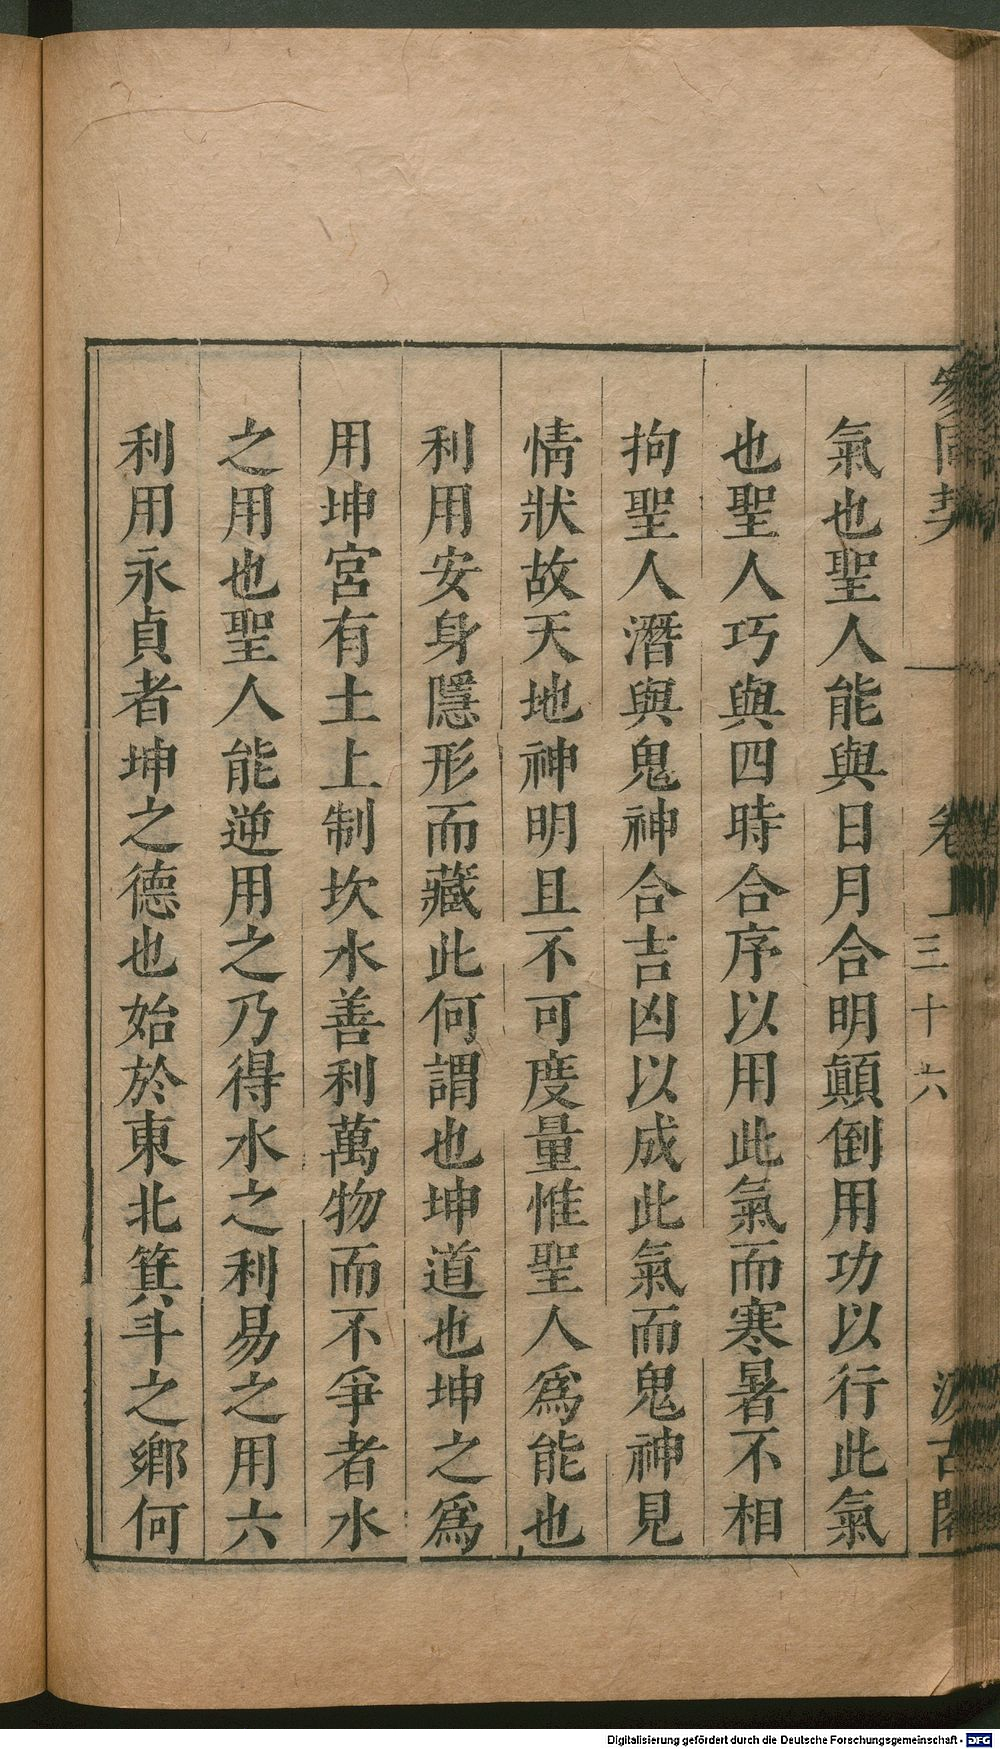 參同契 卷上 三十六 汲古閣
氣也聖人能與日月合明顛倒用功以行此氣
也聖人巧與四時合序以用此氣而寒暑不相
拘聖人潛與鬼神合吉凶以成此氣而鬼神見
情狀故天地神明且不可度量惟聖人爲能也
利用安身隱形而藏此何謂也坤道也坤之爲
用坤宮有土土制坎水善利萬物而不爭者水
之用也聖人能逆用之乃得水之利易之用六
利用永貞者坤之德也始於東北箕斗之鄉何
Digitalisierung gefördert durch die Deutsche Forschungsgemeinschaft - DFG